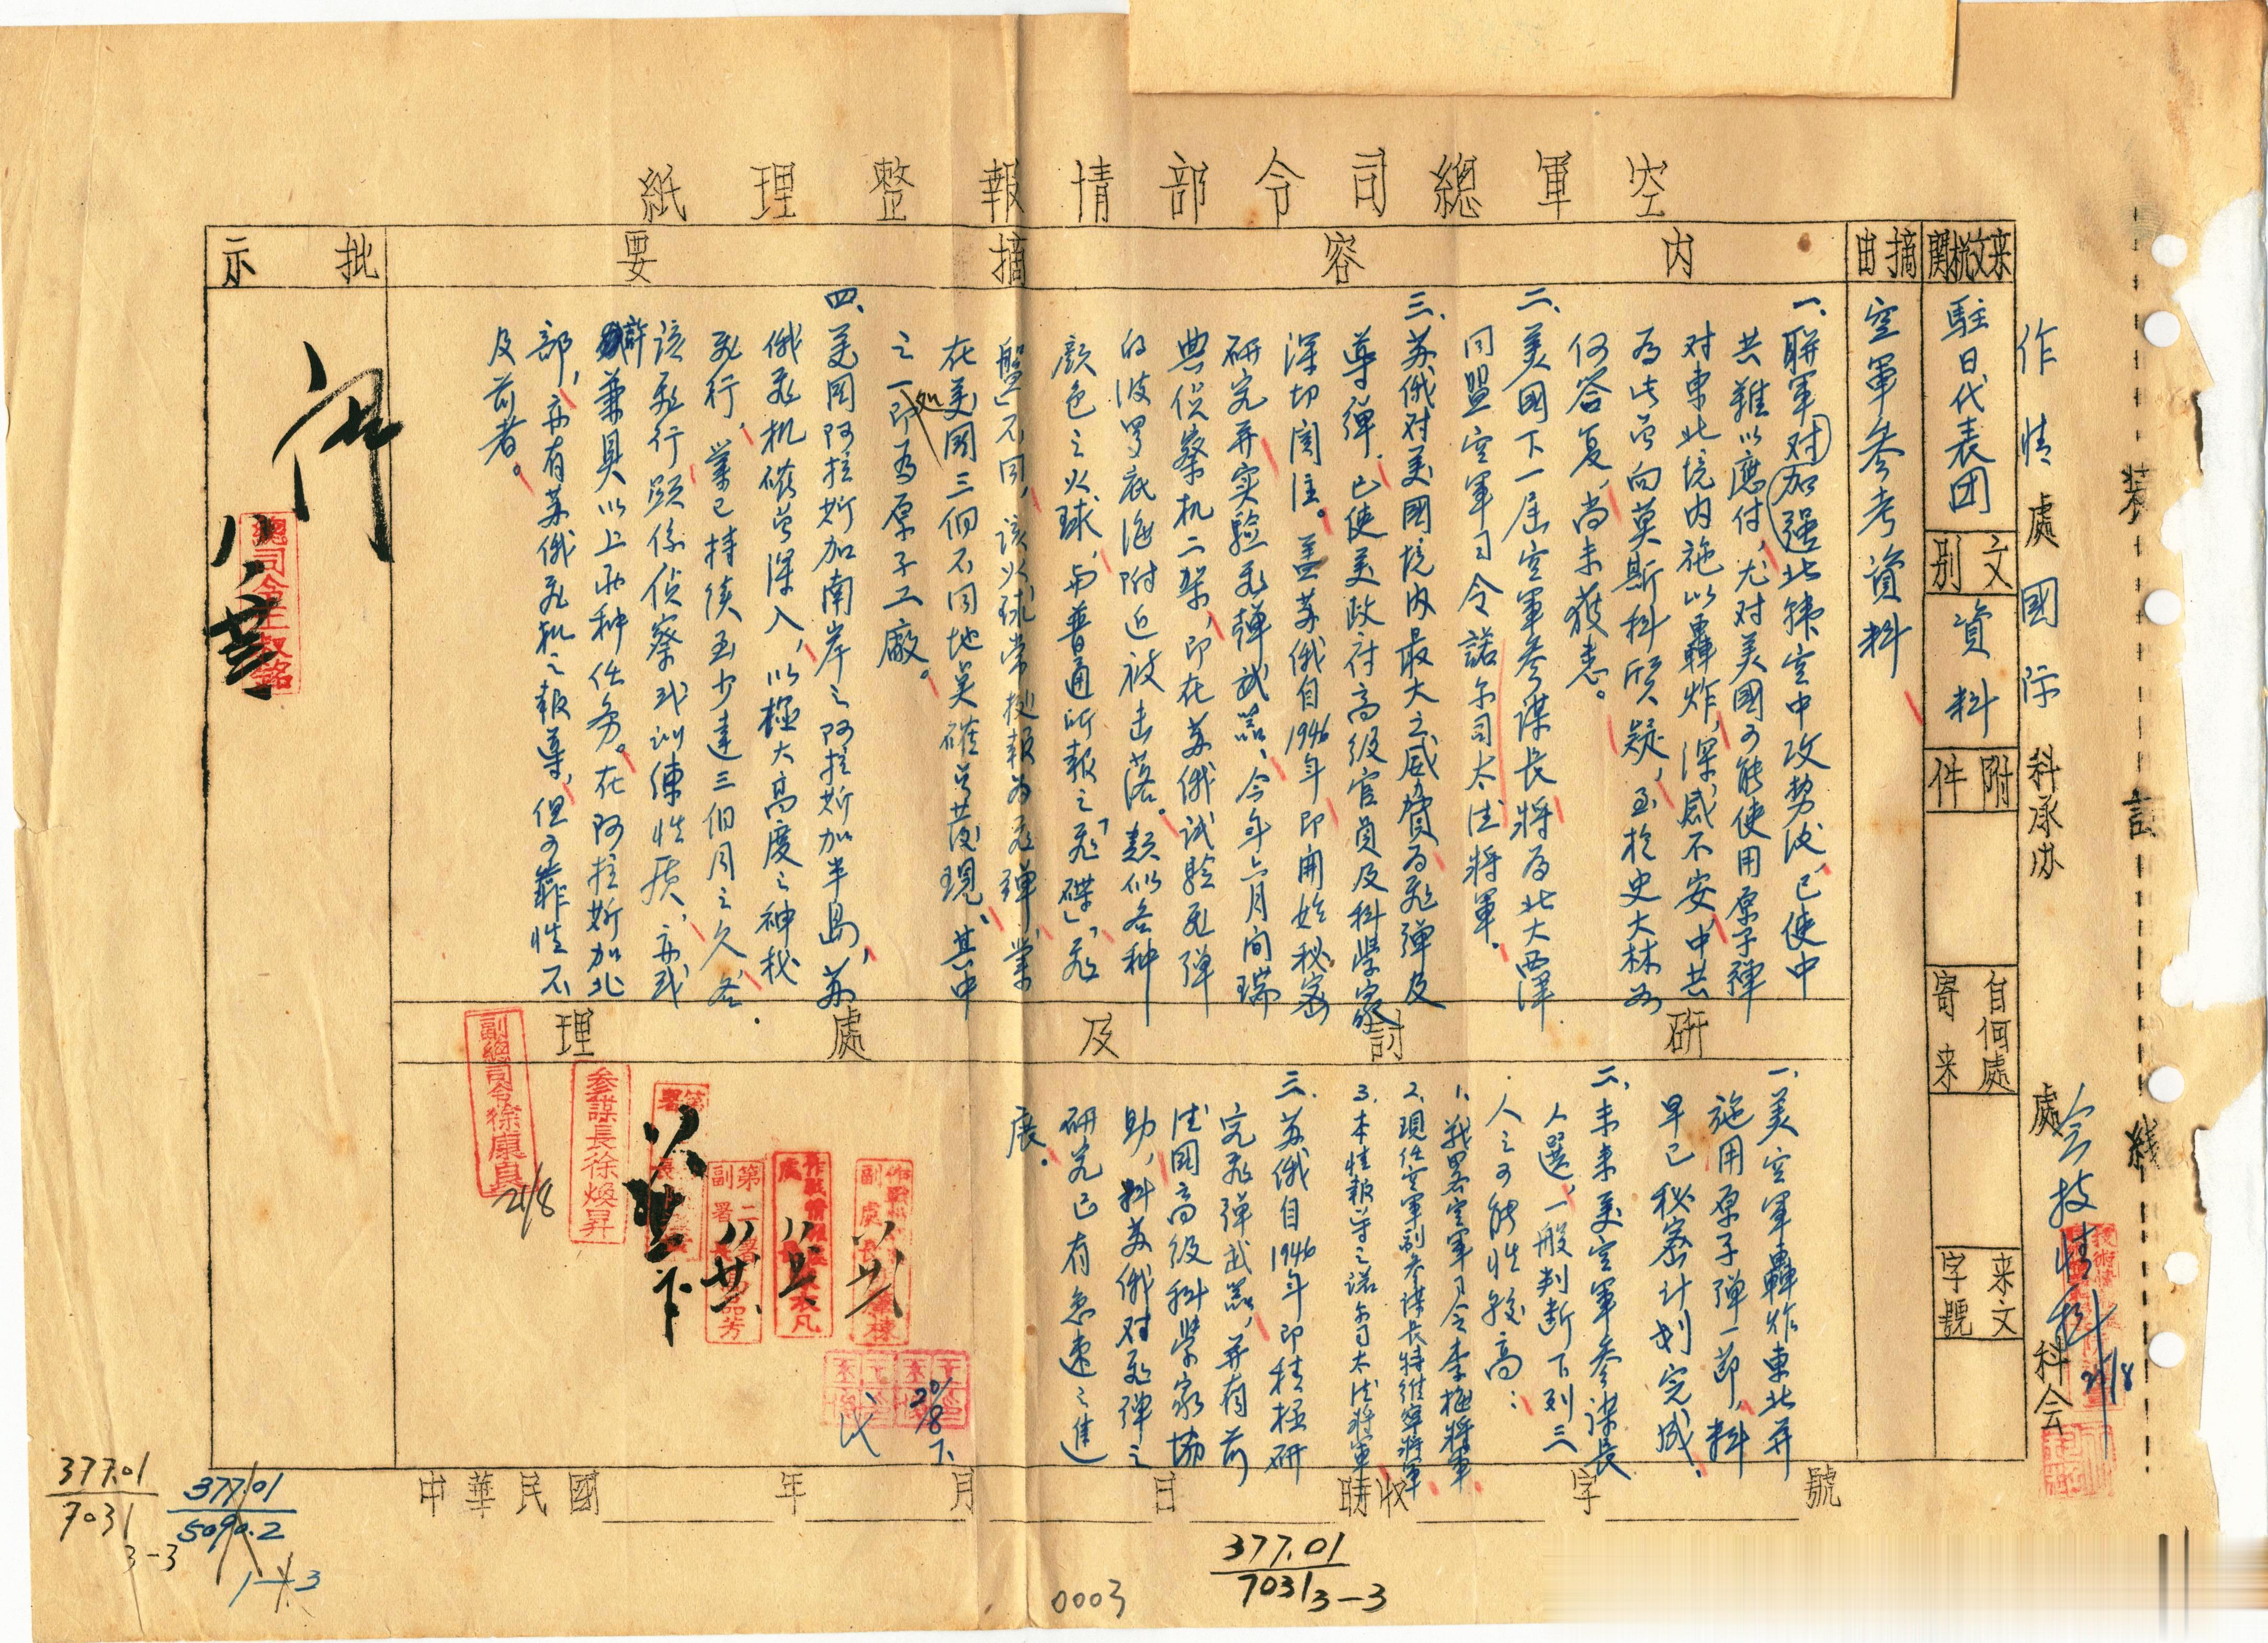 空軍總司令部情報整理紙
作情處國际科承办
處 科会
会技情科
21/8
裝訂綫
来文机関
駐日代表团
文別
資料
附件
自何處寄来
来文字號
摘由
空軍参考資料
內容摘要
一、聯軍对加强北韩空中攻势後,已使中
共難以應付,尤对美國可能使用原子彈
对東北境内施以轟炸,深感不安,中共
為此曾向莫斯科质疑,至於史大林如
何答复,尚未獲悉。
二、美國下一屆空軍参謀長將為北大西洋
同盟空軍司令諾尔司太德將軍。
三、苏俄对美國境内最大之威脅為飛彈及
導弹,已使美政府高级官員及科學家
深切関注。盖苏俄自1946年即開始秘密
研究并实驗飛彈武器,今年六月间瑞
典侦察机二架,即在苏俄試驗飛彈
的波罗底海附近被击落。類似各种
颜色之火球,与普通所報之「飛碟」、「飛
盤」不同,該火球常据報為飛彈,業
在美國三個不同地英確曾發現,其中
之一処即為原子工廠。
四、美國阿拉斯加南岸之阿拉斯加半島,苏
俄飛机確曾深入,以極大高度之神秘
飛行,業已持续至少達三個月之久,咨
該飛行顯係侦察或訓練性质,亦或
許兼具以上两种任务。在阿拉斯加北
部,亦有苏俄飛机之報導,但可靠性不
及前者。
批示
閱
八廿
總司令王叔銘
研討及處理
一、美空軍轟炸東北并
施用原子彈一節,料
早已秘密计划完成
二、未来美空軍参謀長
人選,一般判断下列三
人之可能性較高:
1.战畧空軍司令李梅將軍
2.現任空軍副参謀長特維寧將軍
3.本情報等之諾尔司太德將軍
三、苏俄自1946年即積極研
究飛彈武器,并有前
德國高级科學家協
助,料苏俄对飛彈之
研究已有急速之進
展。
副總司令徐康良
21/8
参謀長徐焕昇
第二署副署長
八廿
20/8
代
中華民國 年 月 日 時收 字 號
377.01
7031
3-3
377.01
5090.2
1-3
377.01
7031
3-3
0003